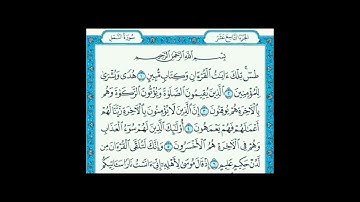 الجزء التاسع عشر سورة النمل
بسم الله الرحمن الرحيم
طسٓ تِلْكَ ءَايَٰتُ ٱلْقُرْءَانِ وَكِتَابٍ مُّبِينٍ ١ هُدًى وَبُشْرَىٰ
لِلْمُؤْمِنِينَ ٢ ٱلَّذِينَ يُقِيمُونَ ٱلصَّلَوٰةَ وَيُؤْتُونَ ٱلزَّكَوٰةَ وَهُم
بِٱلْءَاخِرَةِ هُمْ يُوقِنُونَ ٣ إِنَّ ٱلَّذِينَ لَا يُؤْمِنُونَ بِٱلْءَاخِرَةِ زَيَّنَّا لَهُمْ
أَعْمَٰلَهُمْ فَهُمْ يَعْمَهُونَ ٤ أُو۟لَٰٓئِكَ ٱلَّذِينَ لَهُمْ سُوٓءُ ٱلْعَذَابِ
وَهُمْ فِى ٱلْءَاخِرَةِ هُمُ ٱلْأَخْسَرُونَ ٥ وَإِنَّكَ لَتُلَقَّى ٱلْقُرْءَانَ مِن
لَّدُنْ حَكِيمٍ عَلِيمٍ ٦ إِذْ قَالَ مُوسَىٰ لِأَهْلِهِۦٓ إِنِّىٓ ءَانَسْتُ نَارًا سَـَٔاتِيكُم